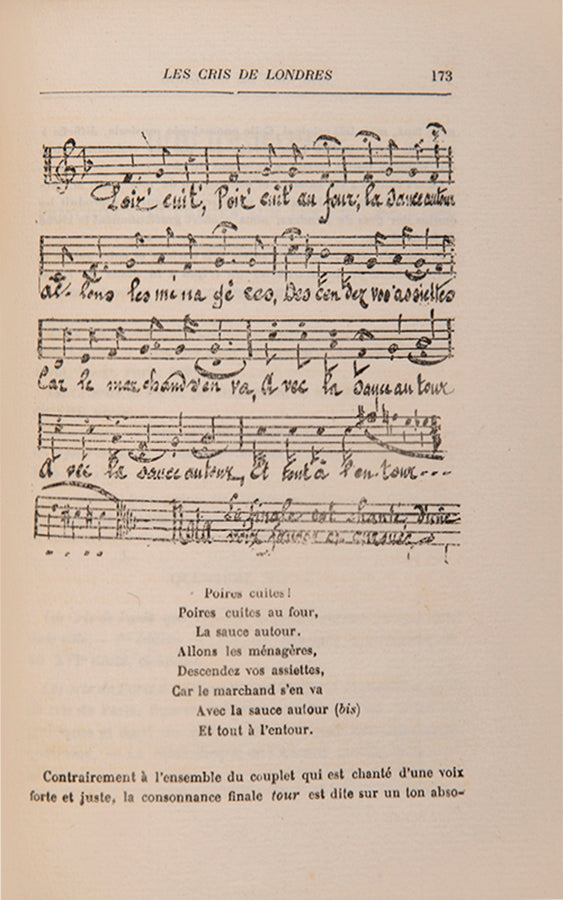 LES CRIS DE LONDRES 173
Poir' cuit', Poir' cuit' au four, la sauce autour
Al- lons les mé na gè res, Des cen dez vos assiettes
Car le mar chand s'en va, A vec la sauce au tour
A vec la sauce autour, Et tout à l'en tour - - -
le finale est chanté, d'une
Nota voix fausse et
Poires cuites !
Poires cuites au four,
La sauce autour.
Allons les ménagères,
Descendez vos assiettes,
Car le marchand s'en va
Avec la sauce autour (bis)
Et tout à l'entour.
Contrairement à l'ensemble du couplet qui est chanté d'une voix
forte et juste, la consonnance finale tour est dite sur un ton abso-